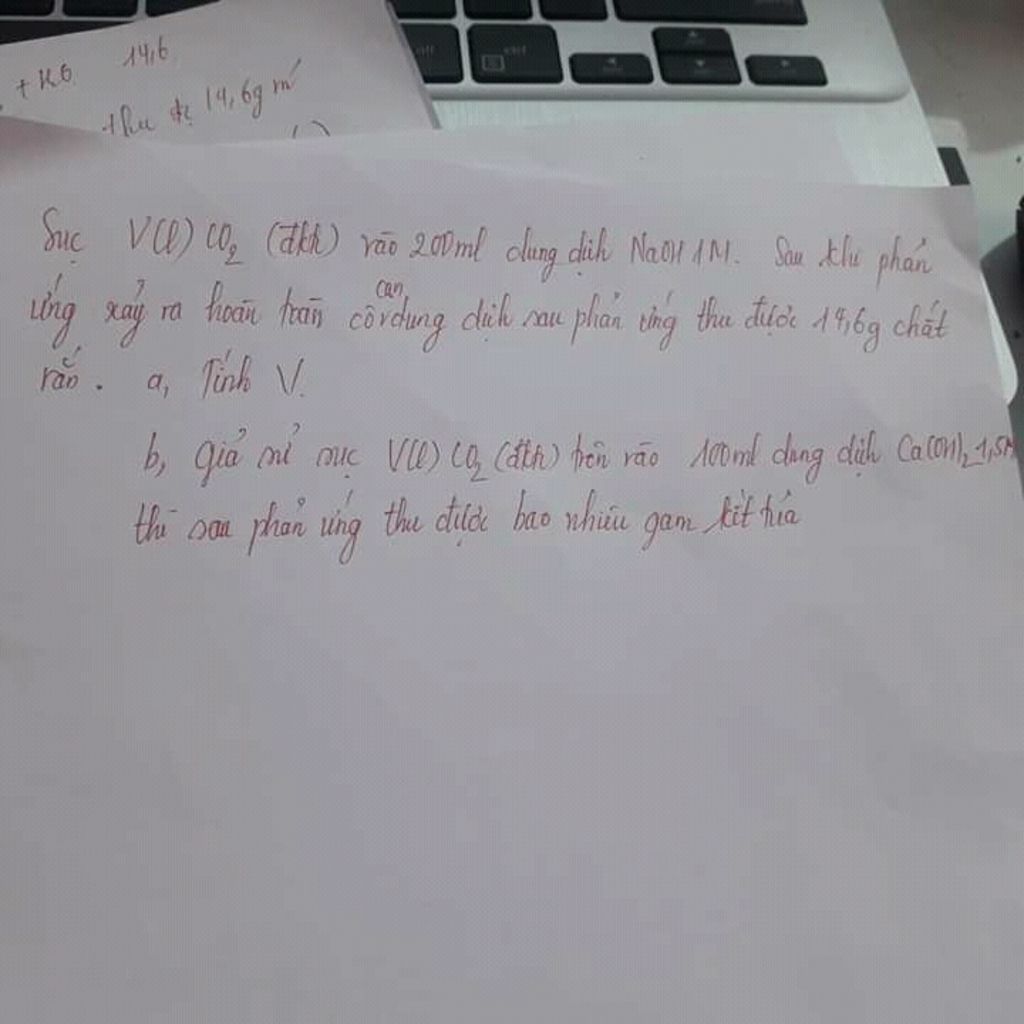 + KO 14,6
thu đc 14,6g m'
Sục V(l) CO2 (đkh) vào 200ml dung dịch NaOH 1M. Sau khi phản
ứng xảy ra hoàn toàn cô cạn dung dịch sau phản ứng thu được 14,6g chất
rắn. a, Tính V.
b, giả sử sục V(l) CO2 (đkh) trên vào 100ml dung dịch Ca(OH)2 1,5M
thì sau phản ứng thu được bao nhiêu gam kết tủa